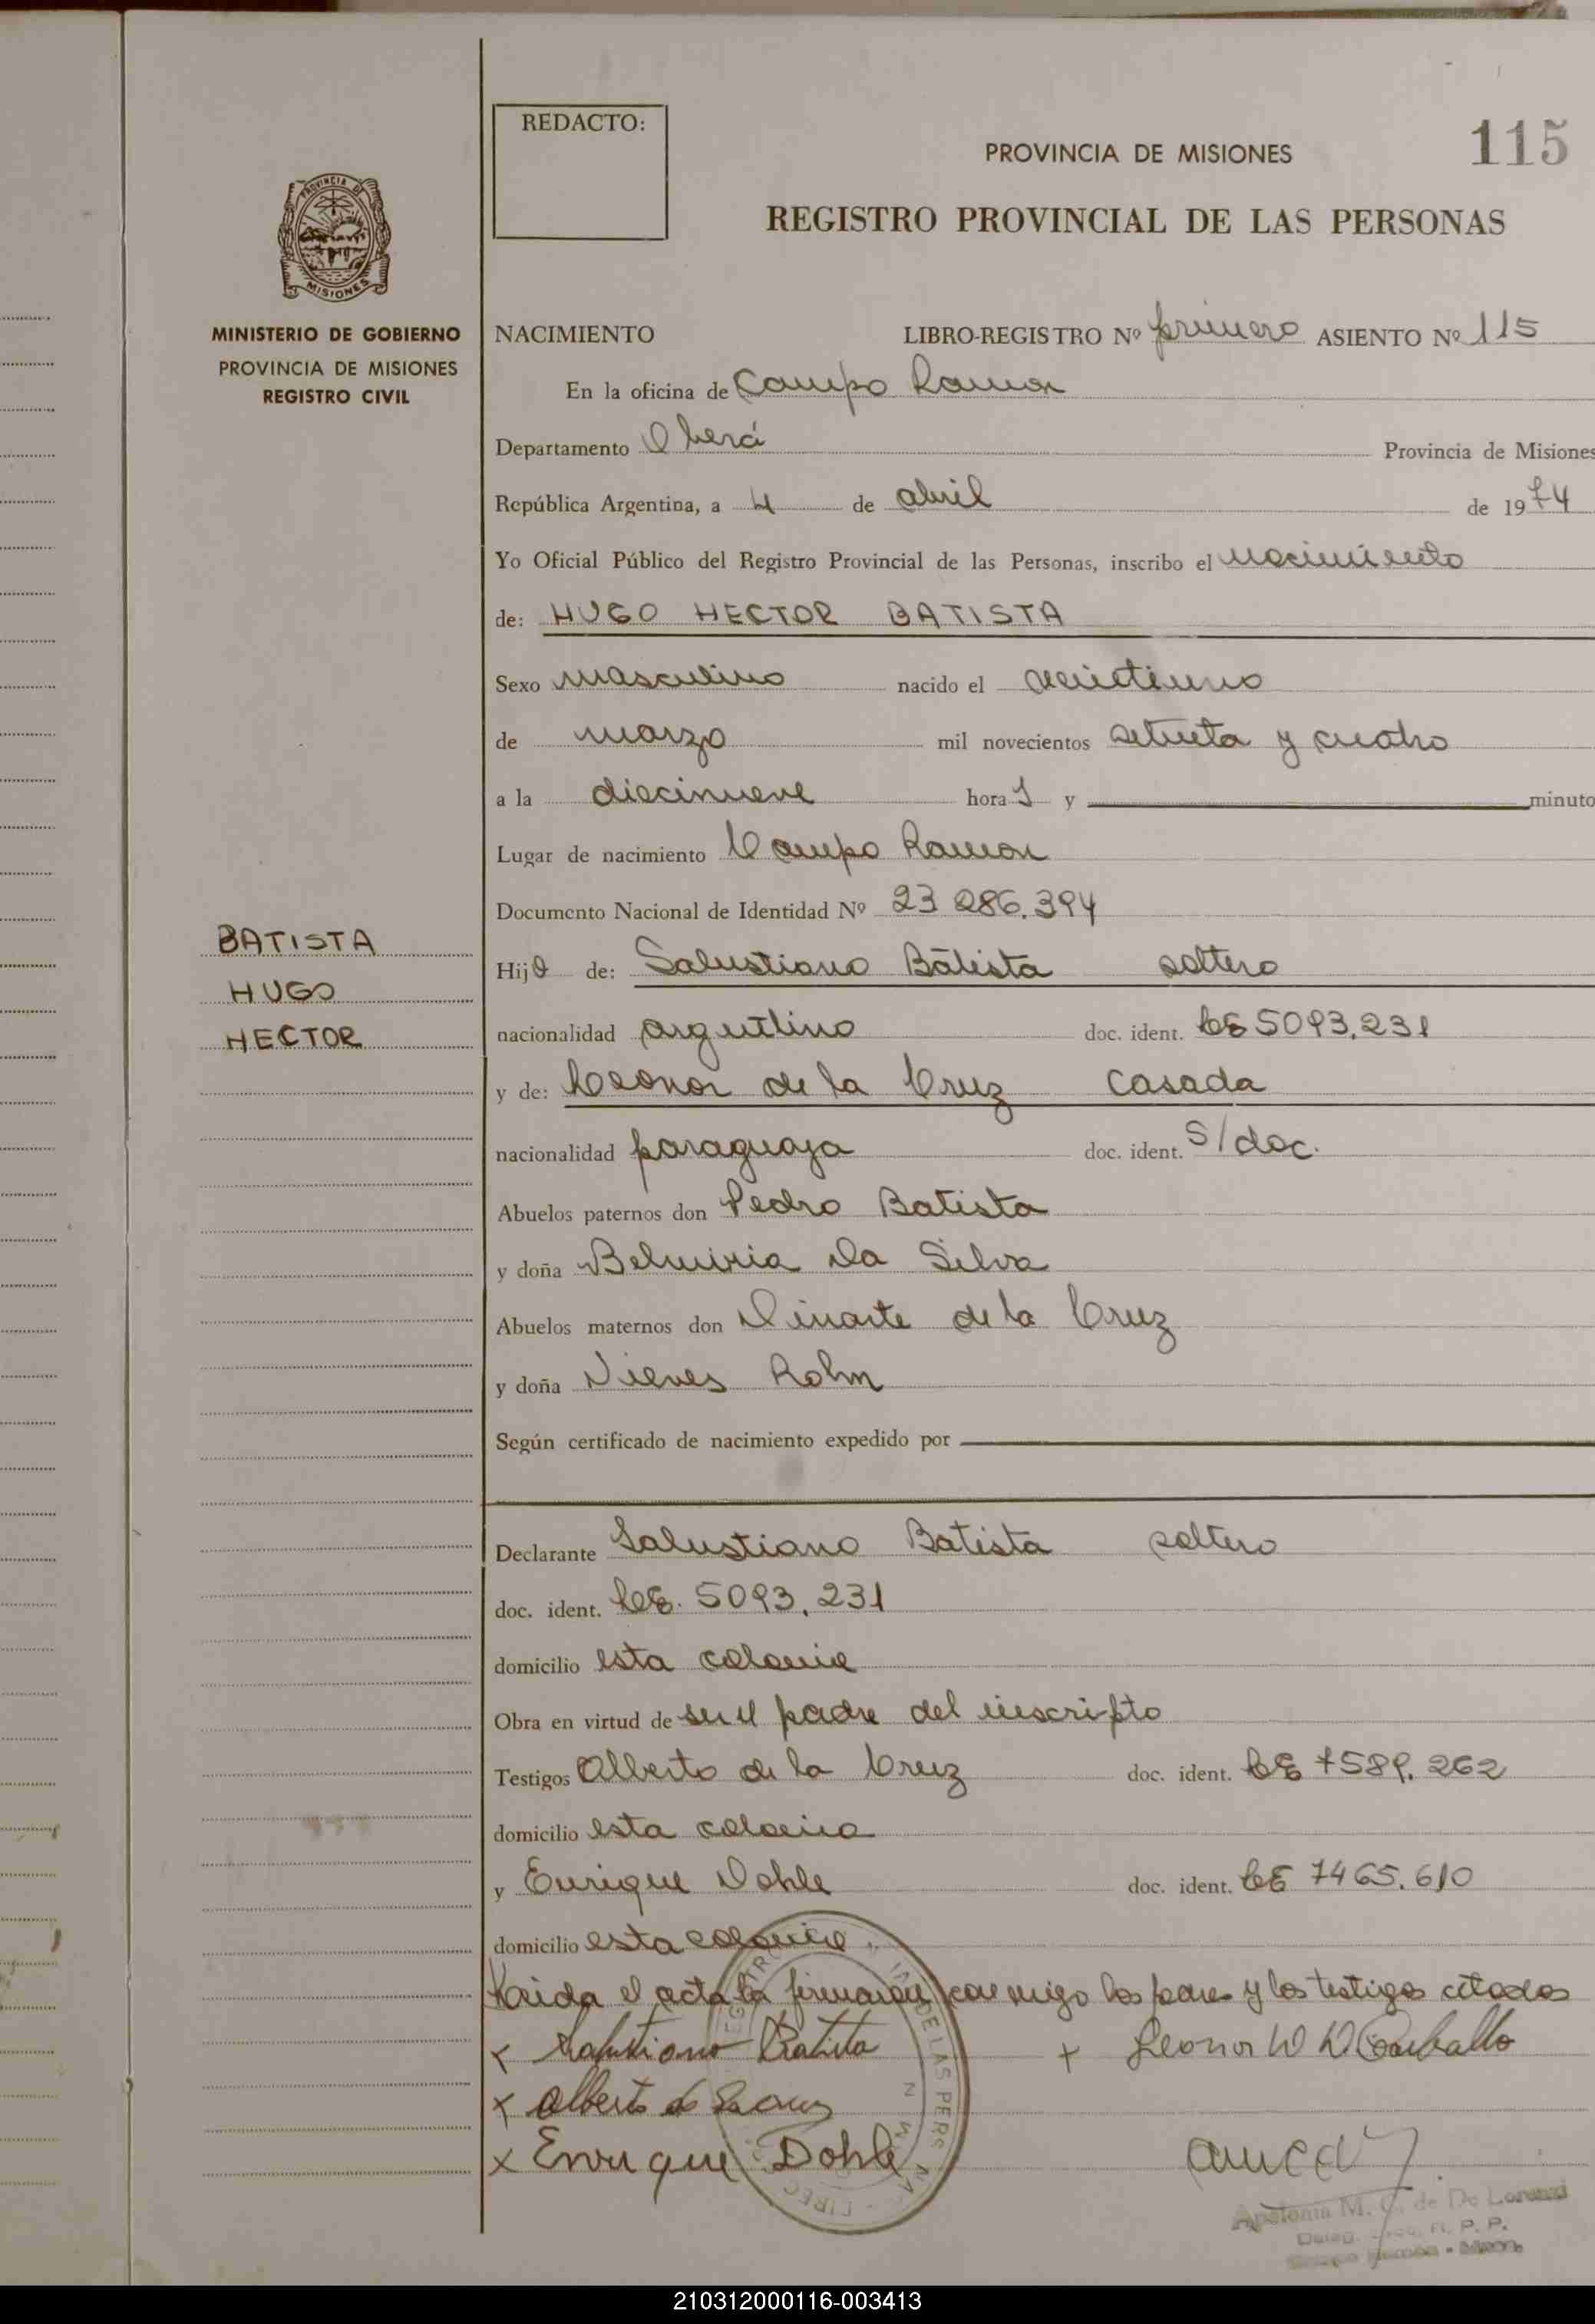 REDACTO:
PROVINCIA DE MISIONES
115
REGISTRO PROVINCIAL DE LAS PERSONAS
PROVINCIA DE
MISIONES
MINISTERIO DE GOBIERNO
PROVINCIA DE MISIONES
REGISTRO CIVIL
NACIMIENTO LIBRO-REGISTRO Nº primero ASIENTO Nº 115
En la oficina de Campo Ramon
Departamento Oberá Provincia de Misiones
República Argentina, a 4 de abril de 1974
Yo Oficial Público del Registro Provincial de las Personas, inscribo el nacimiento
de: HUGO HECTOR BATISTA
Sexo masculino nacido el veintiuno
de marzo mil novecientos setenta y cuatro
a la diecinueve hora s y minuto
Lugar de nacimiento Campo Ramon
Documento Nacional de Identidad Nº 23 286.394
BATISTA
HUGO
HECTOR
Hijo de: Salustiano Batista soltero
nacionalidad argentino doc. ident. 5093.231
y de: Leonor de la Cruz casada
nacionalidad paraguaya doc. ident. S/doc.
Abuelos paternos don Pedro Batista
y doña Belmiria Da Silva
Abuelos maternos don Dinarte de la Cruz
y doña Nieves Rohn
Según certificado de nacimiento expedido por
Declarante Salustiano Batista soltero
doc. ident. 5093.231
domicilio esta colonia
Obra en virtud de ser el padre del inscripto
Testigos Alberto de la Cruz doc. ident. 7589.262
domicilio esta colonia
y Enrique Dohle doc. ident. 7465.610
domicilio esta colonia
Leida el acta la firmaron conmigo los padres y los testigos citados
x Salustiano Batista + Leonor Carballo
x Alberto de la Cruz
x Enrique Dohle
Apolonia M. C. de De Lorenzi
R. P. P.
210312000116-003413